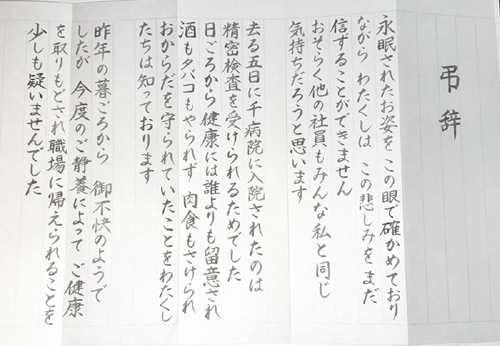 弔辞
永眠されたお姿を この眼で確かめており
ながら わたくしは この悲しみを まだ
信ずることができません
おそらく他の社員もみんな私と同じ
気持ちだろうと思います
去る五日に千病院に入院されたのは
精密検査を受けられるためでした
日ごろから健康には誰よりも留意され
酒もタバコもやられず 肉食もさけられ
おからだを守られていたことをわたくし
たちは知っております
昨年の暮ごろから 御不快のようで
したが 今度のご静養によって ご健康
を取りもどされ職場に帰えられることを
少しも疑いませんでした